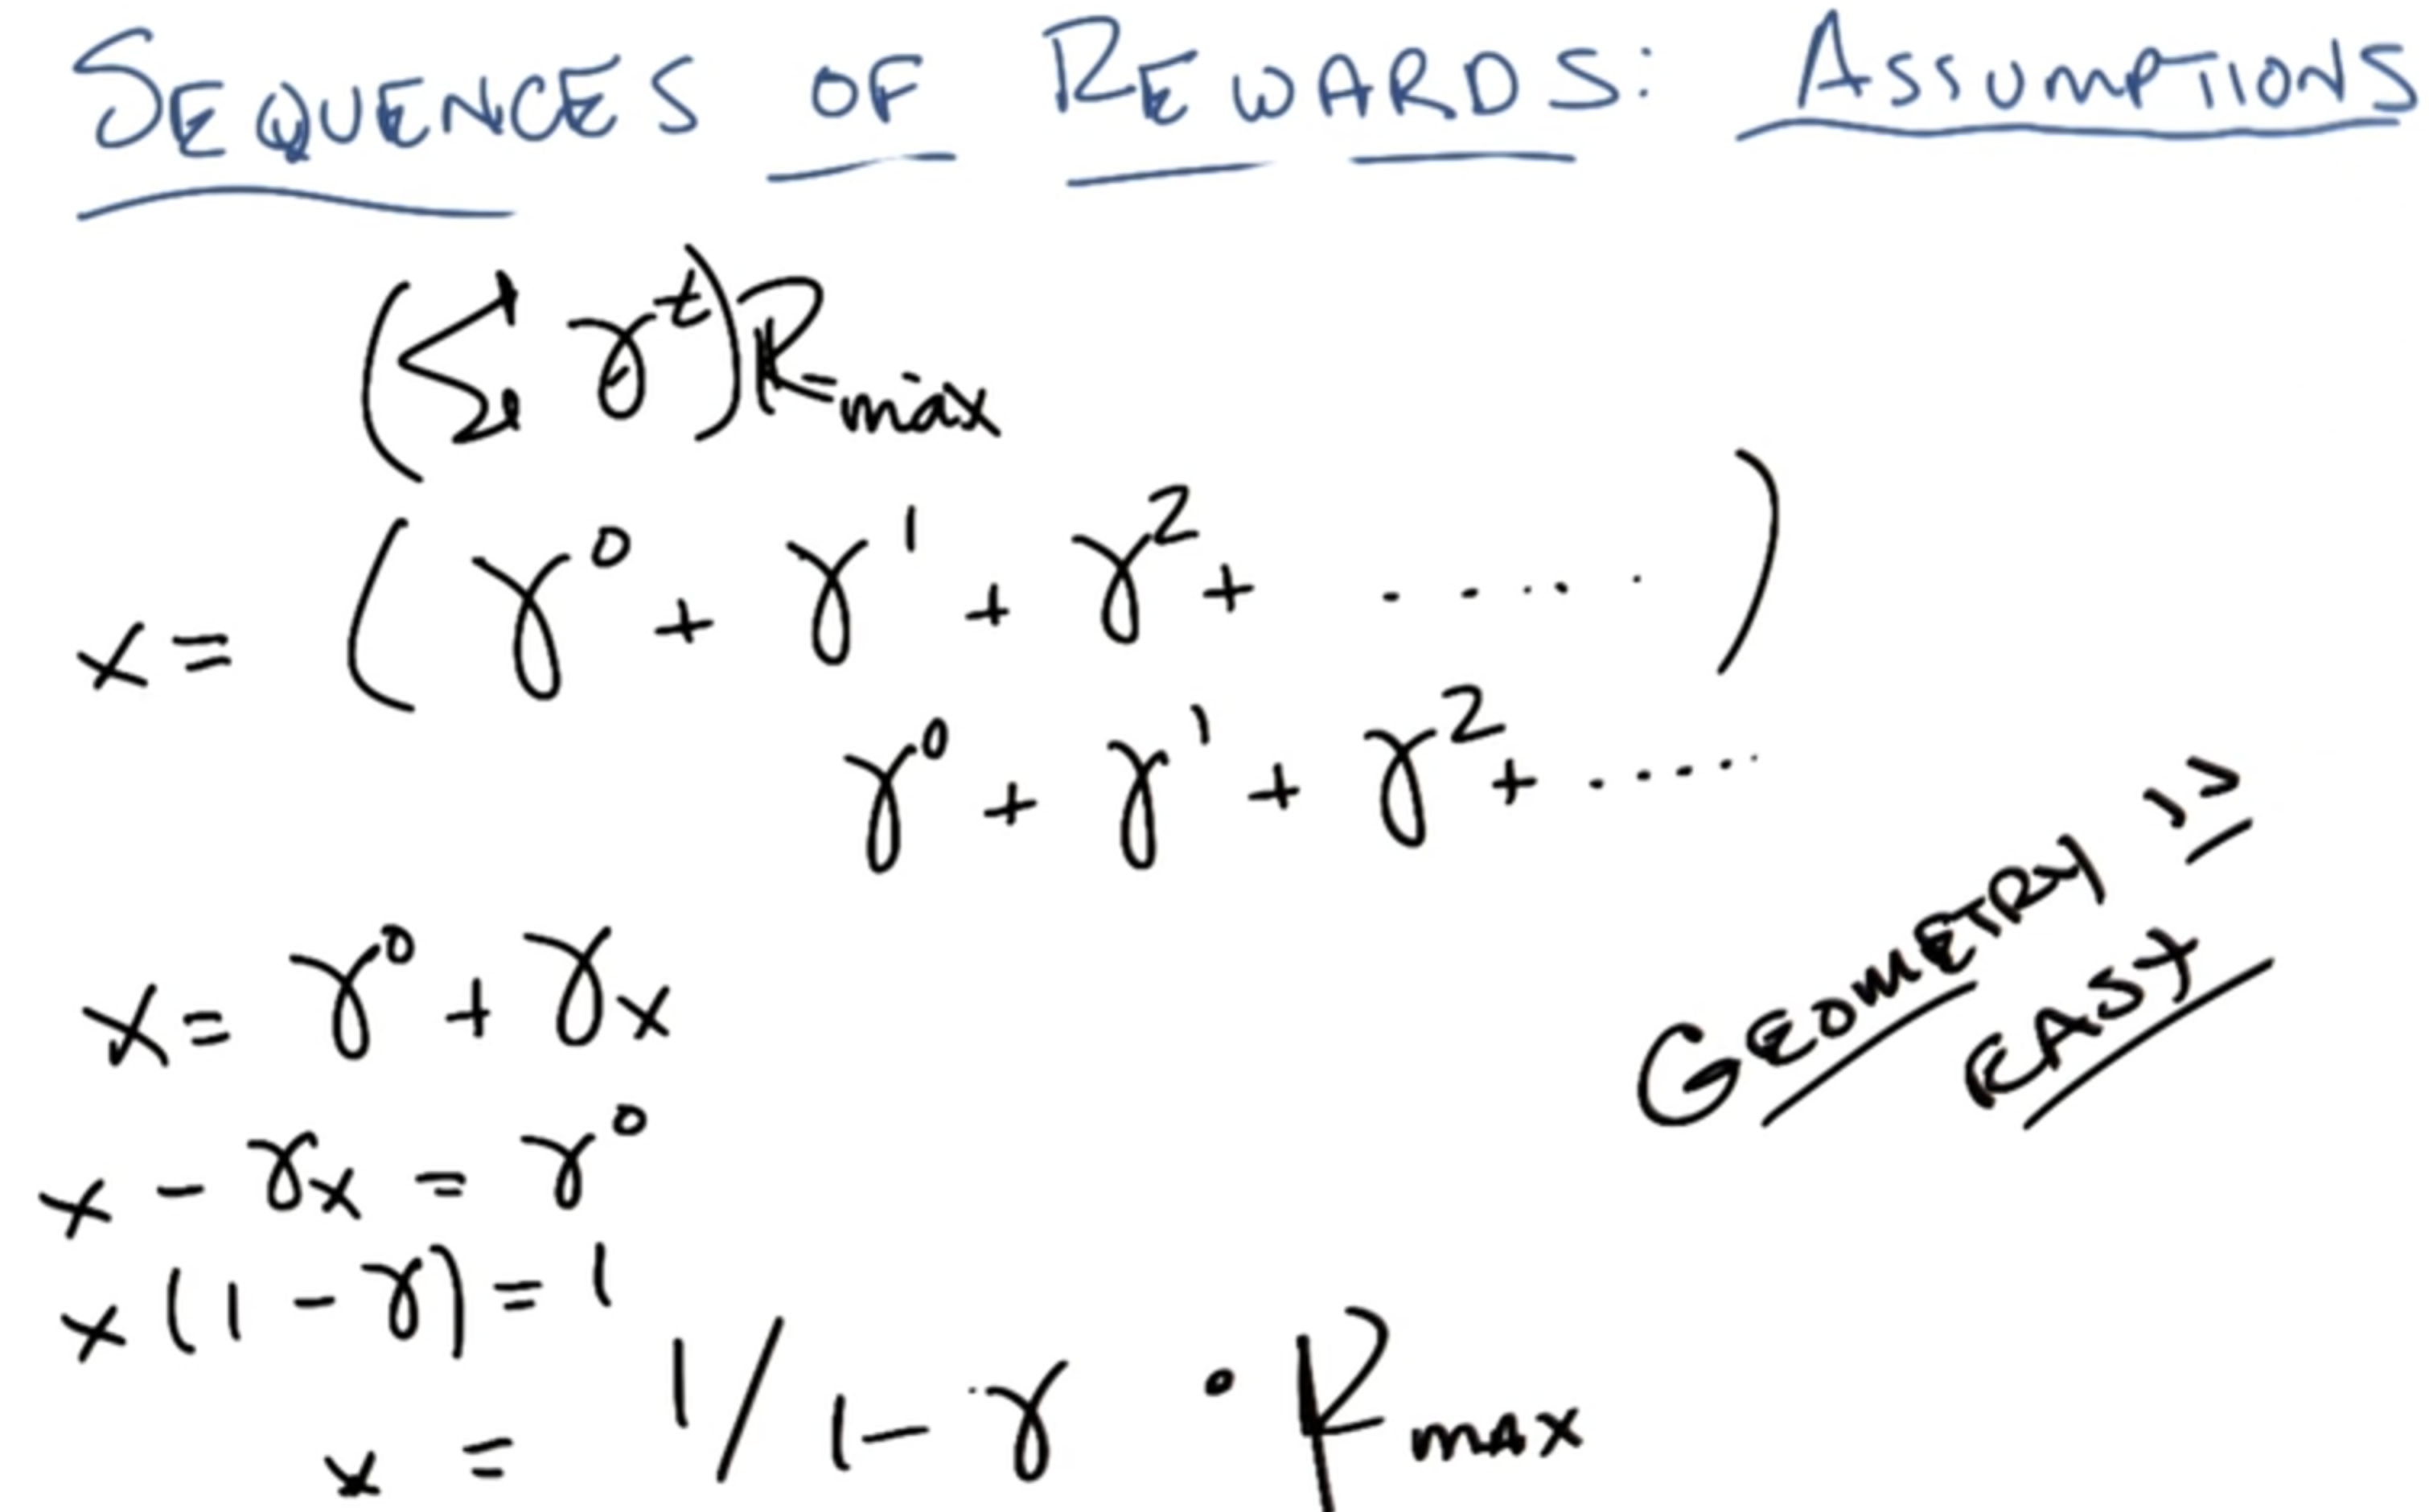 SEQUENCES OF REWARDS: ASSUMPTIONS
(Σ γ^t) R_max
x = ( γ^0 + γ^1 + γ^2 + ..... )
γ^0 + γ^1 + γ^2 + .....
x = γ^0 + γx
x - γx = γ^0
x (1 - γ) = 1
x = 1 / 1 - γ · R_max
GEOMETRY IS
EASY